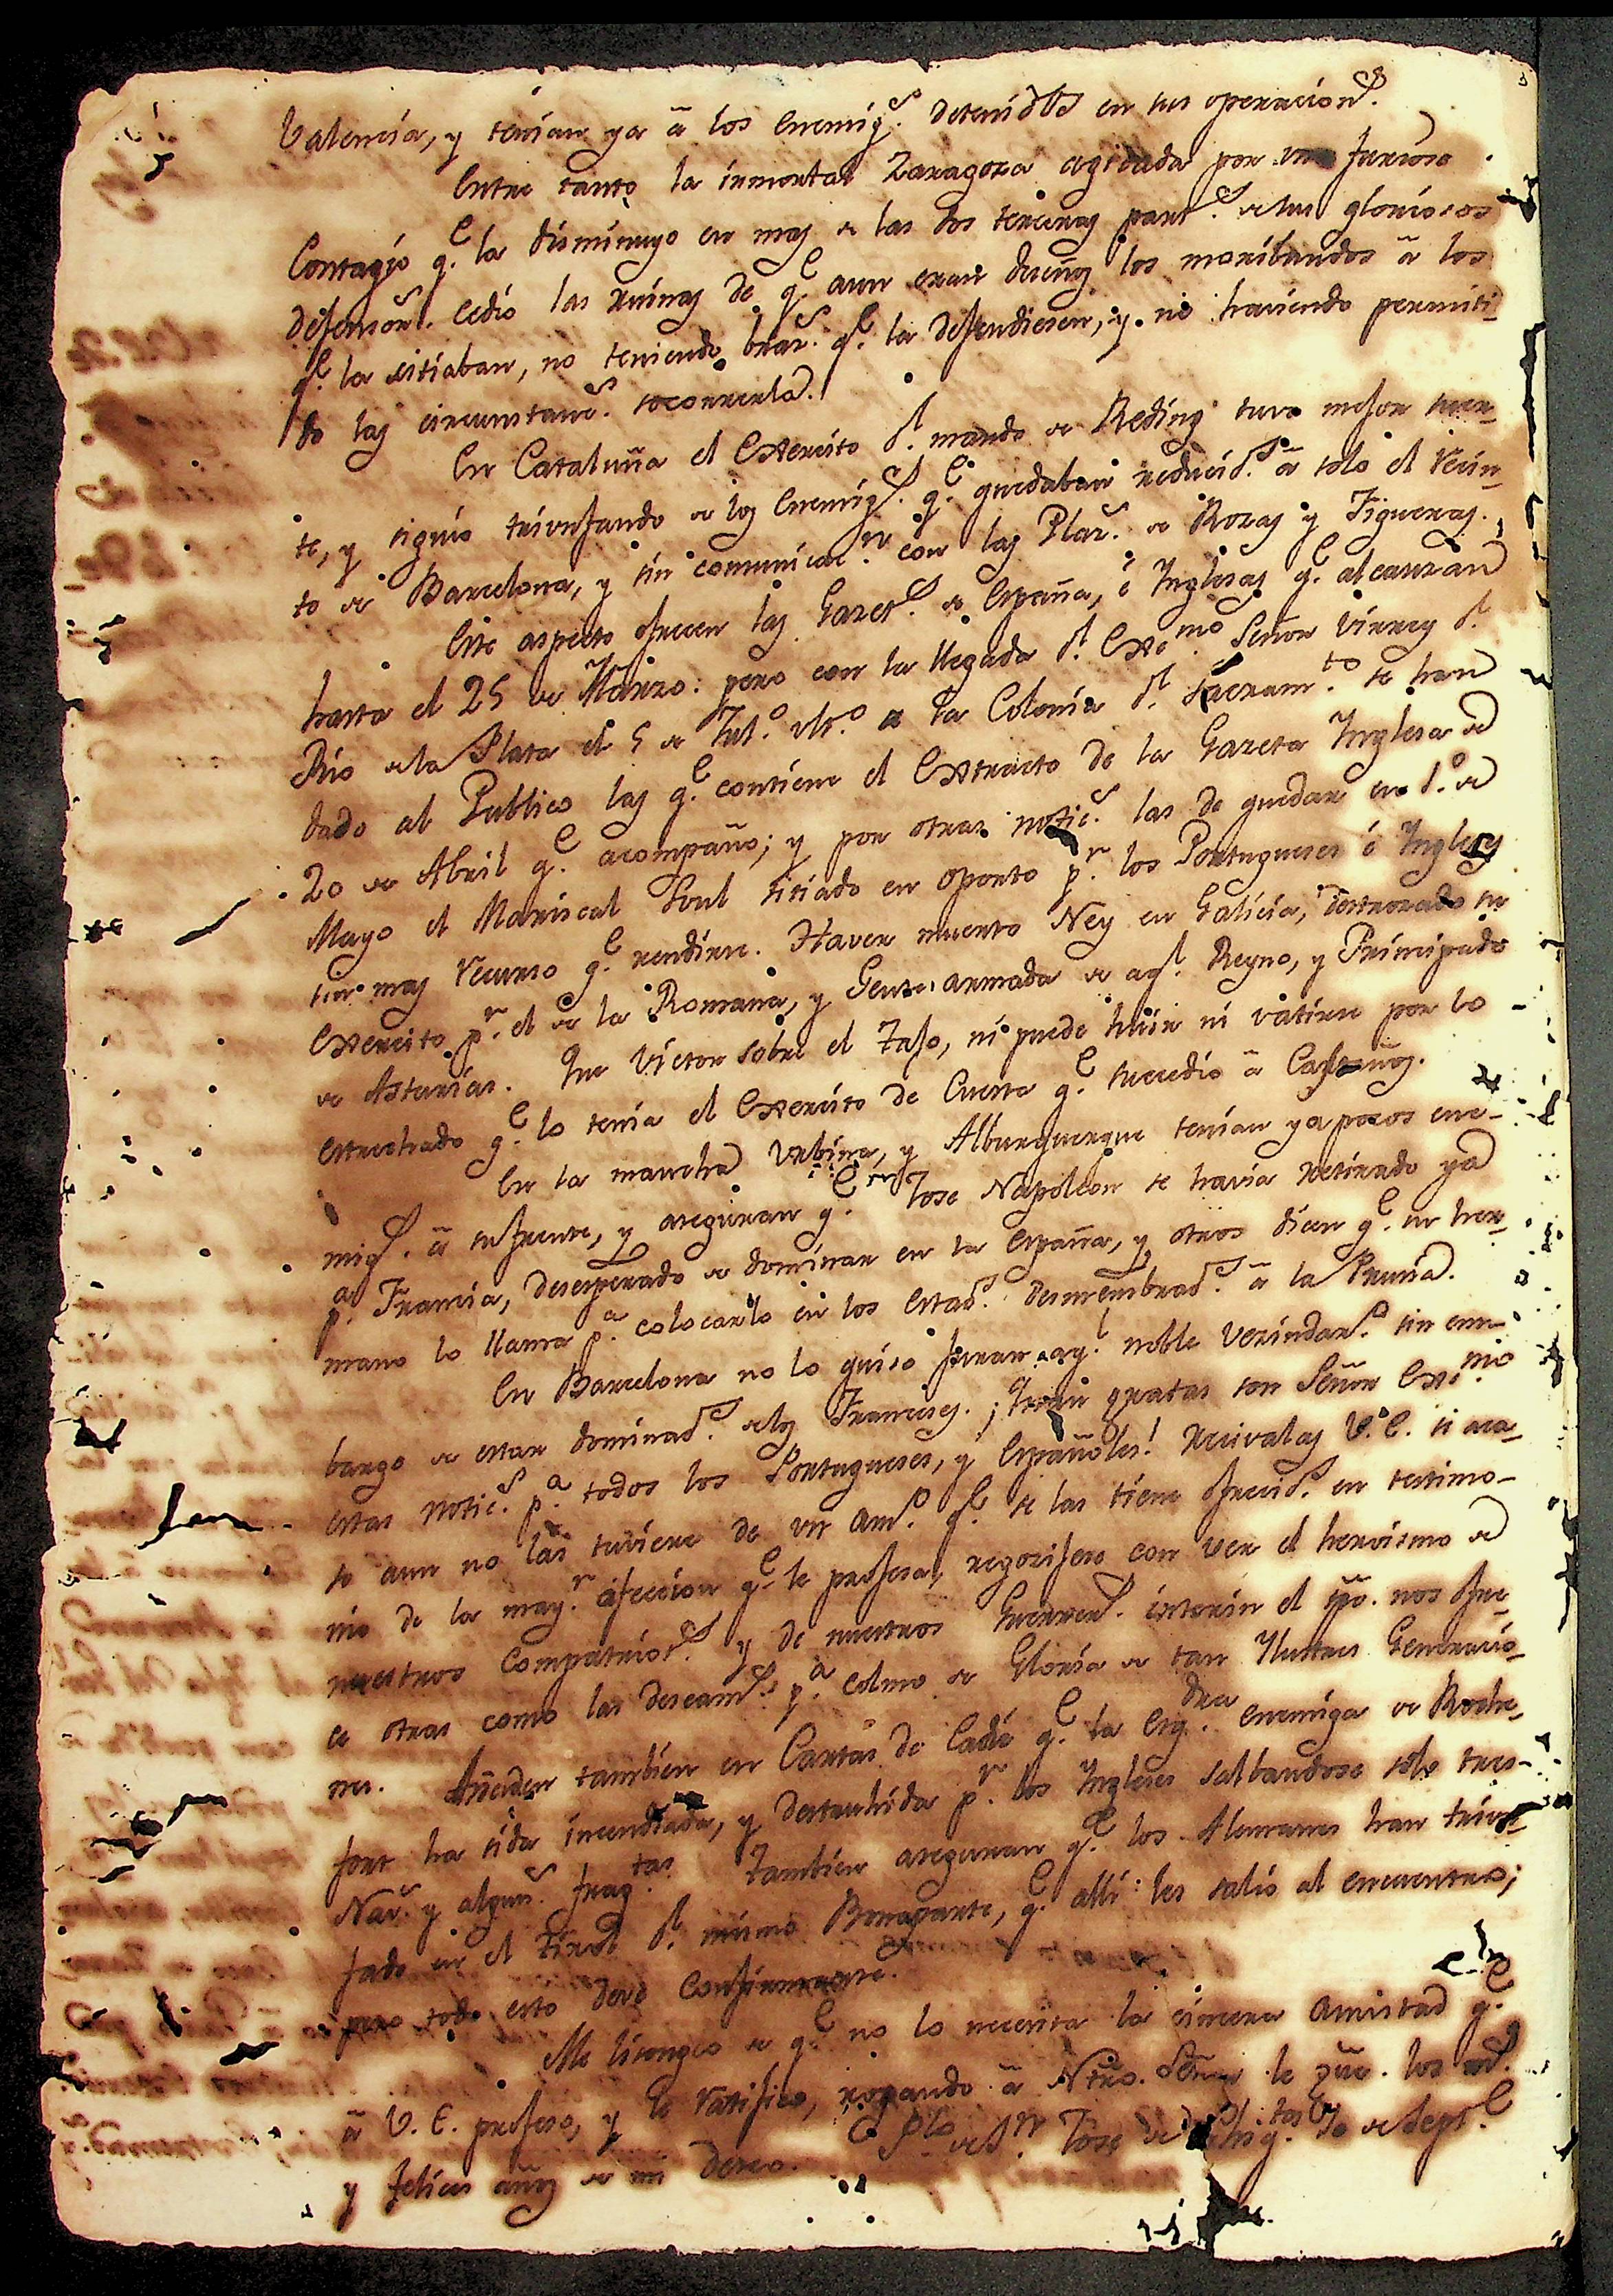 Valencia, y tenian ya â los Enemig.s detenidos en sus operacion.s
Entre tanto la inmortal Zaragoza agitada por un furioso
Contagio q.e la disminuyo en mas de las dos terceras part.s de sus gloriosos
defensor.s cedió las ruinas de q.e aun eran dueños los moribundos â los
q.e la sitiaban, no teniendo braz.s q.e la defendiesen, y no haviendo permiti-
do las circunstanc.s socorrerla.
En Cataluña el Exercito d.l mando de Reding tuvo mejor suer-
te, y siguio triunfando de los Enemig.s q.e quedaban reducid.s â solo el recin-
to de Barcelona, y sin comunicac.n con las Plaz.s de Rozas y Figueras.
Este aspecto ofrecen las Gazet.s de España, é Inglesas q.e alcanzan
hasta el 25 de Marzo: pero con la llegada d.l Exc.mo Señor Virrey d.l
Rio de la Plata el 5 de Jul.o ult.o a la Colonia d.l Sacram.to se han
dado al Publico las q.e contiene el Extracto de la Gazeta Inglesa de
20 de Abril q.e acompaño; y por otras notic.s las de quedar en 1.o de
Mayo el Mariscal Soul sitiado en Oporto p.r los Portugueses é Ingleses
sin mas recurso q.e rendirse. Haver muerto Ney en Galicia, destrozado su
Exercito p.r el de la Romana, y Gente armada de aq.l Reyno, y Principado
de Asturias. Que Victor sobre el Tajo, ni puede huir ni vatirse por lo
estrechado q.e lo tenia el Exercito de Cuesta q.e sucedió â Castaños.
En la mancha Urbina, y Alburquerque tenian ya pocos ene-
mig.s â su frente, y aseguran q.e Jose Napoleon se havia retirado ya
p.a Francia, desesperado de dominar en la España, y otros dicen q.e su her-
mano lo llama p.a colocarlo en los Estad.s desmembrad.s â la Prusia.
En Barcelona no lo quiso jurar aq.l noble Vecindar.o sin em-
bargo de estar dominad.s de los Franceses. ¡Quan gratas son Señor Exc.mo
estas notic.s p.a todos los Portugueses, y Españoles! Recivalas V.E. si aca-
so aun no las tuviere de un am.o q.e se las tiene ofrecid.s en testimo-
nio de la may.r afeccion q.e le profesa, regozijese con ver el heroismo de
nuestros compatriot.s y de nuestros Guerrer.s interin el tpô. nos ofre-
ce otras como las deseam.s p.a colmo de Gloria de tan Ilustres Generacio-
nes. Añaden tambien en Cartas de Cadiz q.e la Esq.dra enemiga de Roche-
fort ha sido incendiada, y destruhida p.r los Ingleses salbandose solo tres
Nav.s y algun.s frag.tas Tambien aseguran q.e los Alemanes han triun-
fado en el Tirol d.l mismo Bonaparte, q.e alli les salió al encuentro;
pero todo esto deve confirmarse.
Me lisongeo de q.e no lo necesita la sincera amistad q.e
â V.E. profeso, y le ratifico, rogando â Ntro. Señor le gũe. los m.s
y felices añ.s de mi deseo. Plo de S.n Jose de Sept.e